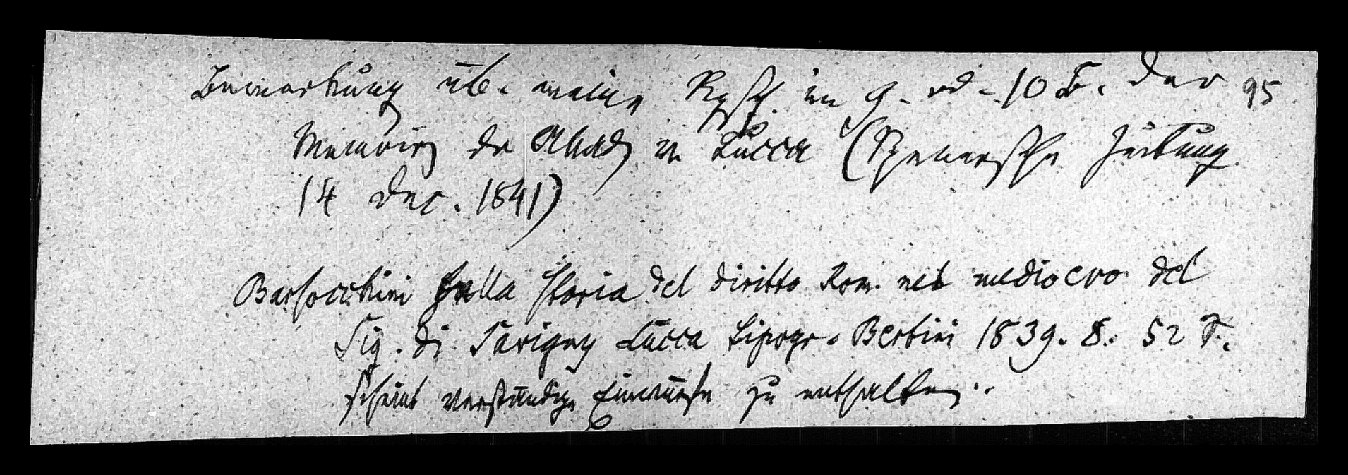 Bemerkung üb. meine Rgsch. im 9. u. 10 B. der 95
Memoiren der Akad. in Lucca (Spenersche Zeitung
14 Dec. 1841)
Barsocchini sulla storia del diritto Rom. nel medio evo del
Sig. di Savigny Lucca tipogr. Bertini 1839. 8. 52 S.
scheint verständige Einwürfe zu enthalten.